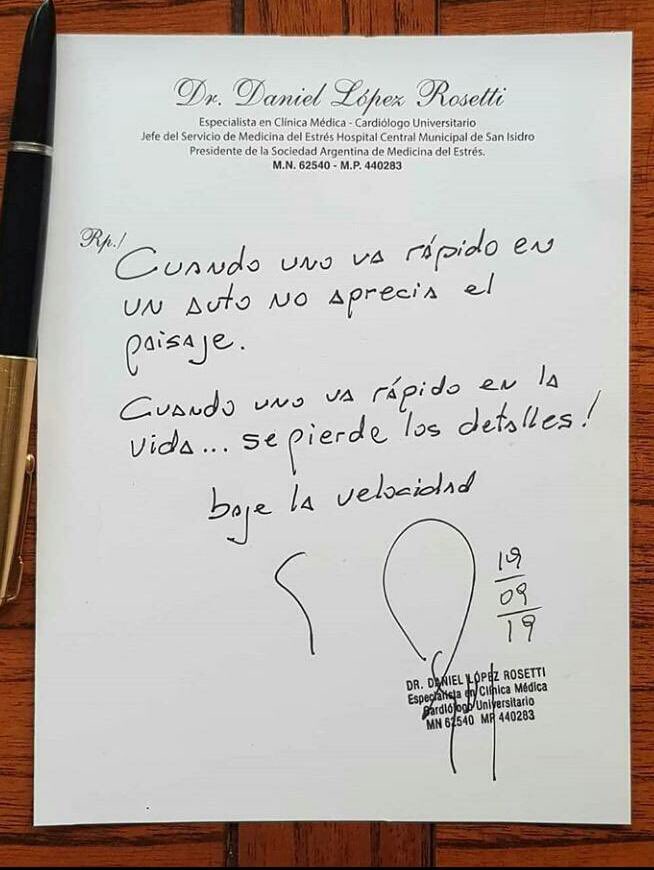 Dr. Daniel López Rosetti
Especialista en Clínica Médica - Cardiólogo Universitario
Jefe del Servicio de Medicina del Estrés Hospital Central Municipal de San Isidro
Presidente de la Sociedad Argentina de Medicina del Estrés.
M.N. 62540 - M.P. 440283
Rp./
Cuando uno va rápido en
un auto no aprecia el
paisaje.
Cuando uno va rápido en la
vida... se pierde los detalles!
baje la velocidad
19
09
19
DR. DANIEL LÓPEZ ROSETTI
Especialista en Clínica Médica
Cardiólogo Universitario
MN 62540 MP 440283